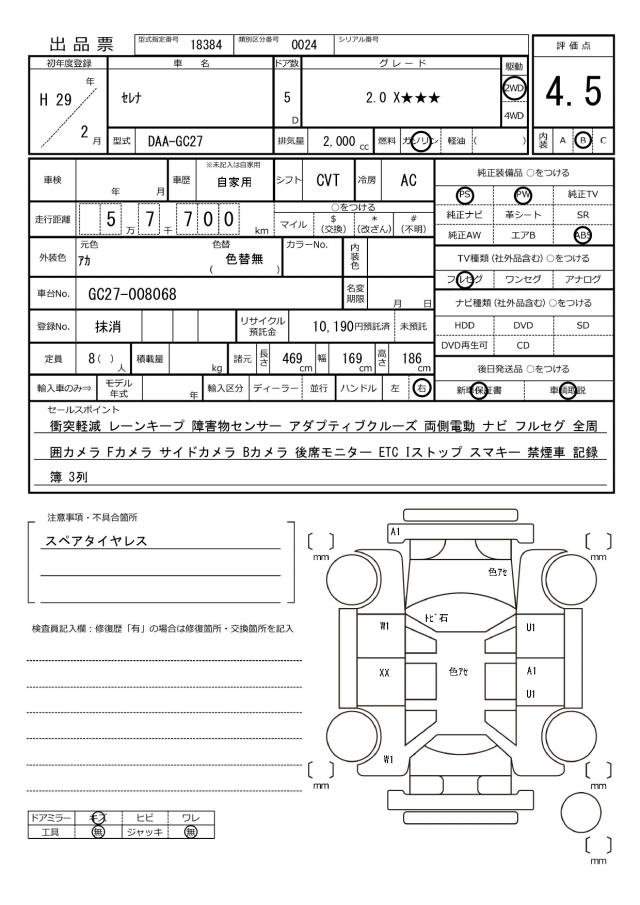 出品票 型式指定番号 18384 類別区分番号 0024 シリアル番号
初年度登録 車名 ドア数 グレード 駆動 評価点
H 29 年 2 月 セレナ 5 D 2.0 X★★★ 2WD 4WD 4.5
型式 DAA-GC27 排気量 2,000 cc 燃料 ガソリン 軽油 ( ) 内装 A B C
車検 年 月 車歴 ※未記入は自家用 自家用 シフト CVT 冷房 AC
純正装備品 ○をつける
PS PW 純正TV
純正ナビ 革シート SR
純正AW エアB ABS
走行距離 5 7 7 0 0 万 千 km ○をつける
マイル $(交換) *(改ざん) #(不明)
外装色 元色 アカ 色替 ( 色替無 ) カラーNo. 内装色
TV種類(社外品含む)○をつける
フルセグ ワンセグ アナログ
車台No. GC27-008068 名変期限 月 日
ナビ種類(社外品含む)○をつける
HDD DVD SD
DVD再生可 CD
登録No. 抹消 リサイクル預託金 10,190円預託済 未預託
定員 8( )人 積載量 kg 諸元 長さ 469 cm 幅 169 cm 高さ 186 cm
後日発送品 ○をつける
新車保証書 車輌取説
輸入車のみ⇒ モデル年式 年 輸入区分 ディーラー 並行 ハンドル 左 右
セールスポイント
衝突軽減 レーンキープ 障害物センサー アダプティブクルーズ 両側電動 ナビ フルセグ 全周
囲カメラ Fカメラ サイドカメラ Bカメラ 後席モニター ETC Iストップ スマキー 禁煙車 記録
簿 3列
注意事項・不具合箇所
スペアタイヤレス
検査員記入欄：修復歴「有」の場合は修復箇所・交換箇所を記入
A1
mm mm
色アセ
トビ石
W1 U1
XX 色アセ A1
U1
W1
mm mm
mm
ドアミラー キズ ヒビ ワレ
工具 無 ジャッキ 無